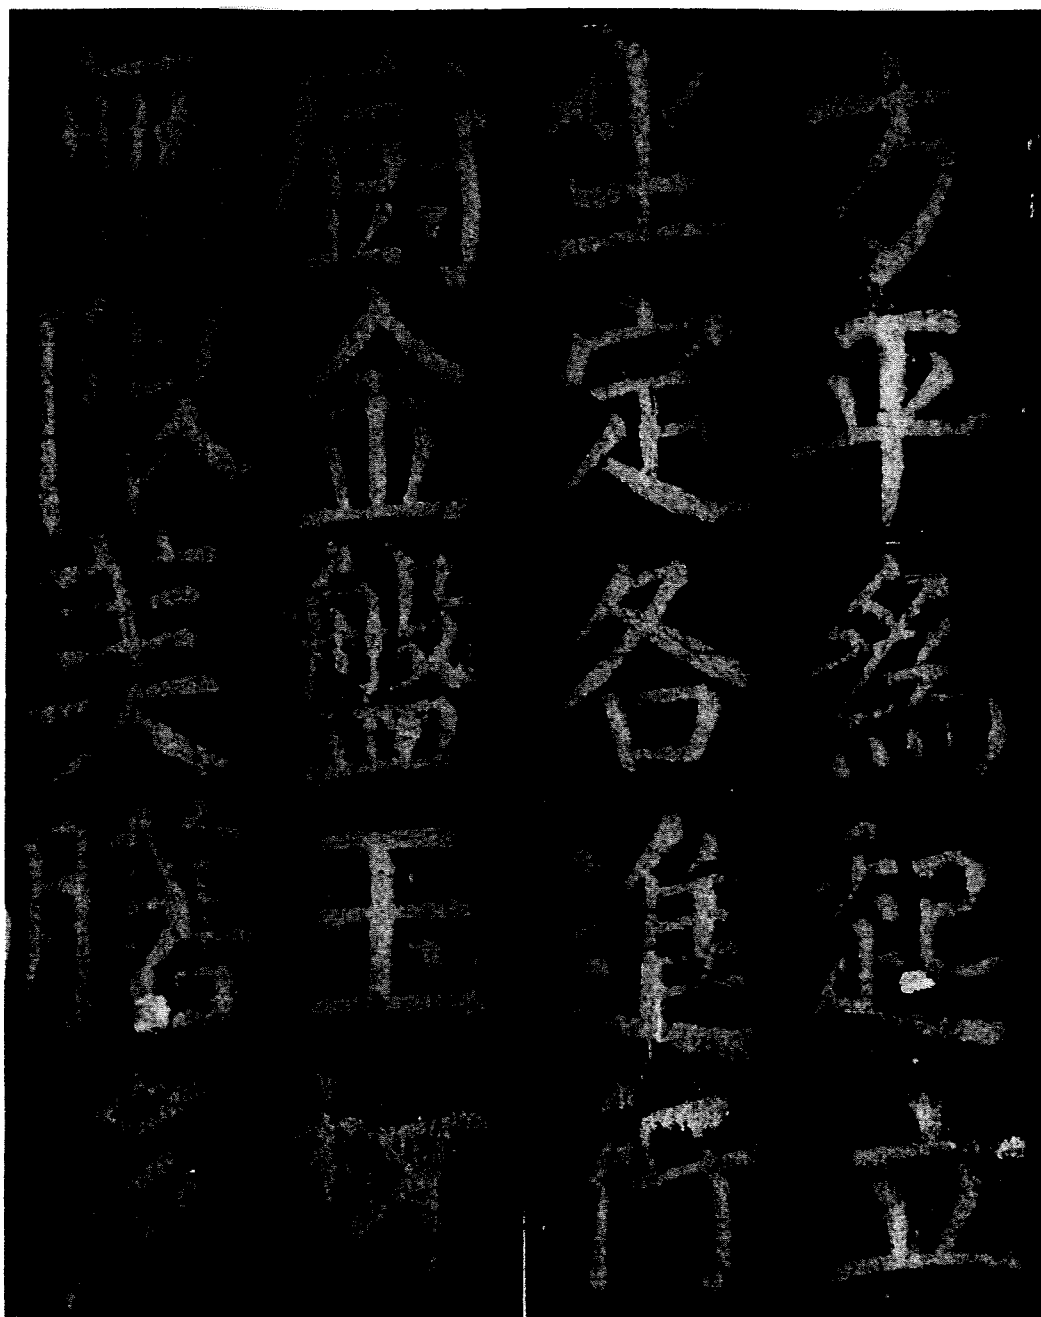 方平爲起立
坐定各進行
廚金盤玉杯
無限美膳多